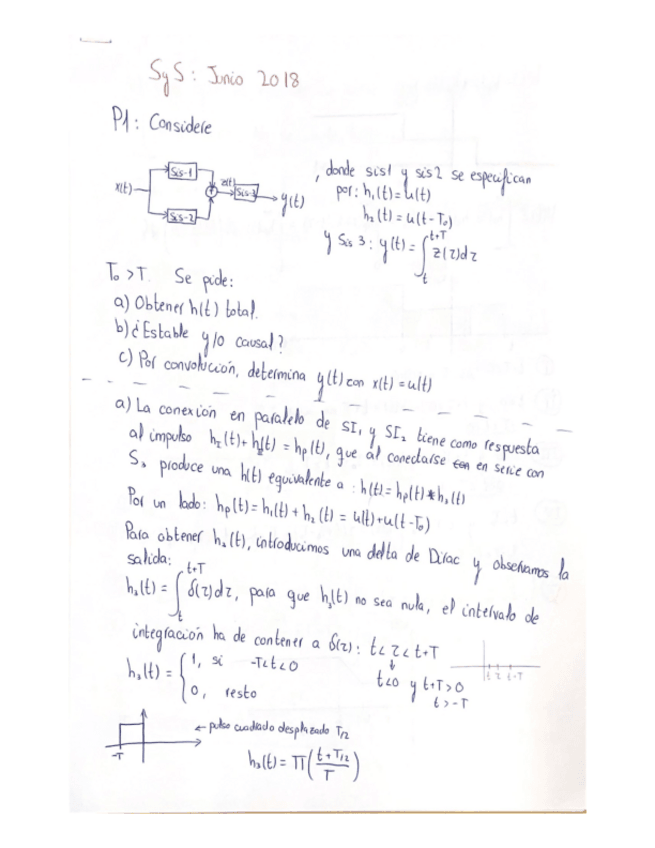 SyS: Junio 2018
P1: Considere
x(t) Sis-1 Sis-2 z(t) Sis-3 y(t)
, donde sis1 y sis2 se especifican
por: h₁(t)=u(t)
h₂(t)=u(t-T₀)
y Sis 3: y(t)=∫ₜᵗ⁺ᵀ z(τ)dτ
T₀>T. Se pide:
a) Obtener h(t) total.
b) ¿Estable y/o causal?
c) Por convolución, determina y(t) con x(t)=u(t)
a) La conexión en paralelo de SI₁ y SI₂ tiene como respuesta
al impulso h₂(t)+h₁(t)=hₚ(t), que al conectarse en serie con
S₃ produce una h(t) equivalente a: h(t)=hₚ(t)*h₃(t)
Por un lado: hₚ(t)=h₁(t)+h₂(t)=u(t)+u(t-T₀)
Para obtener h₃(t), introducimos una delta de Dirac y observamos la
salida:
h₃(t)=∫ₜᵗ⁺ᵀ δ(τ)dτ, para que h₃(t) no sea nula, el intervalo de
integración ha de contener a δ(τ): t<τ<t+T
h₃(t)={1, si -T<t<0
0, resto
↓
t<0 y t+T>0
t>-T
t τ t+T
-T
← pulso cuadrado desplazado T/2
h₃(t)=Π((t+T/2)/T)